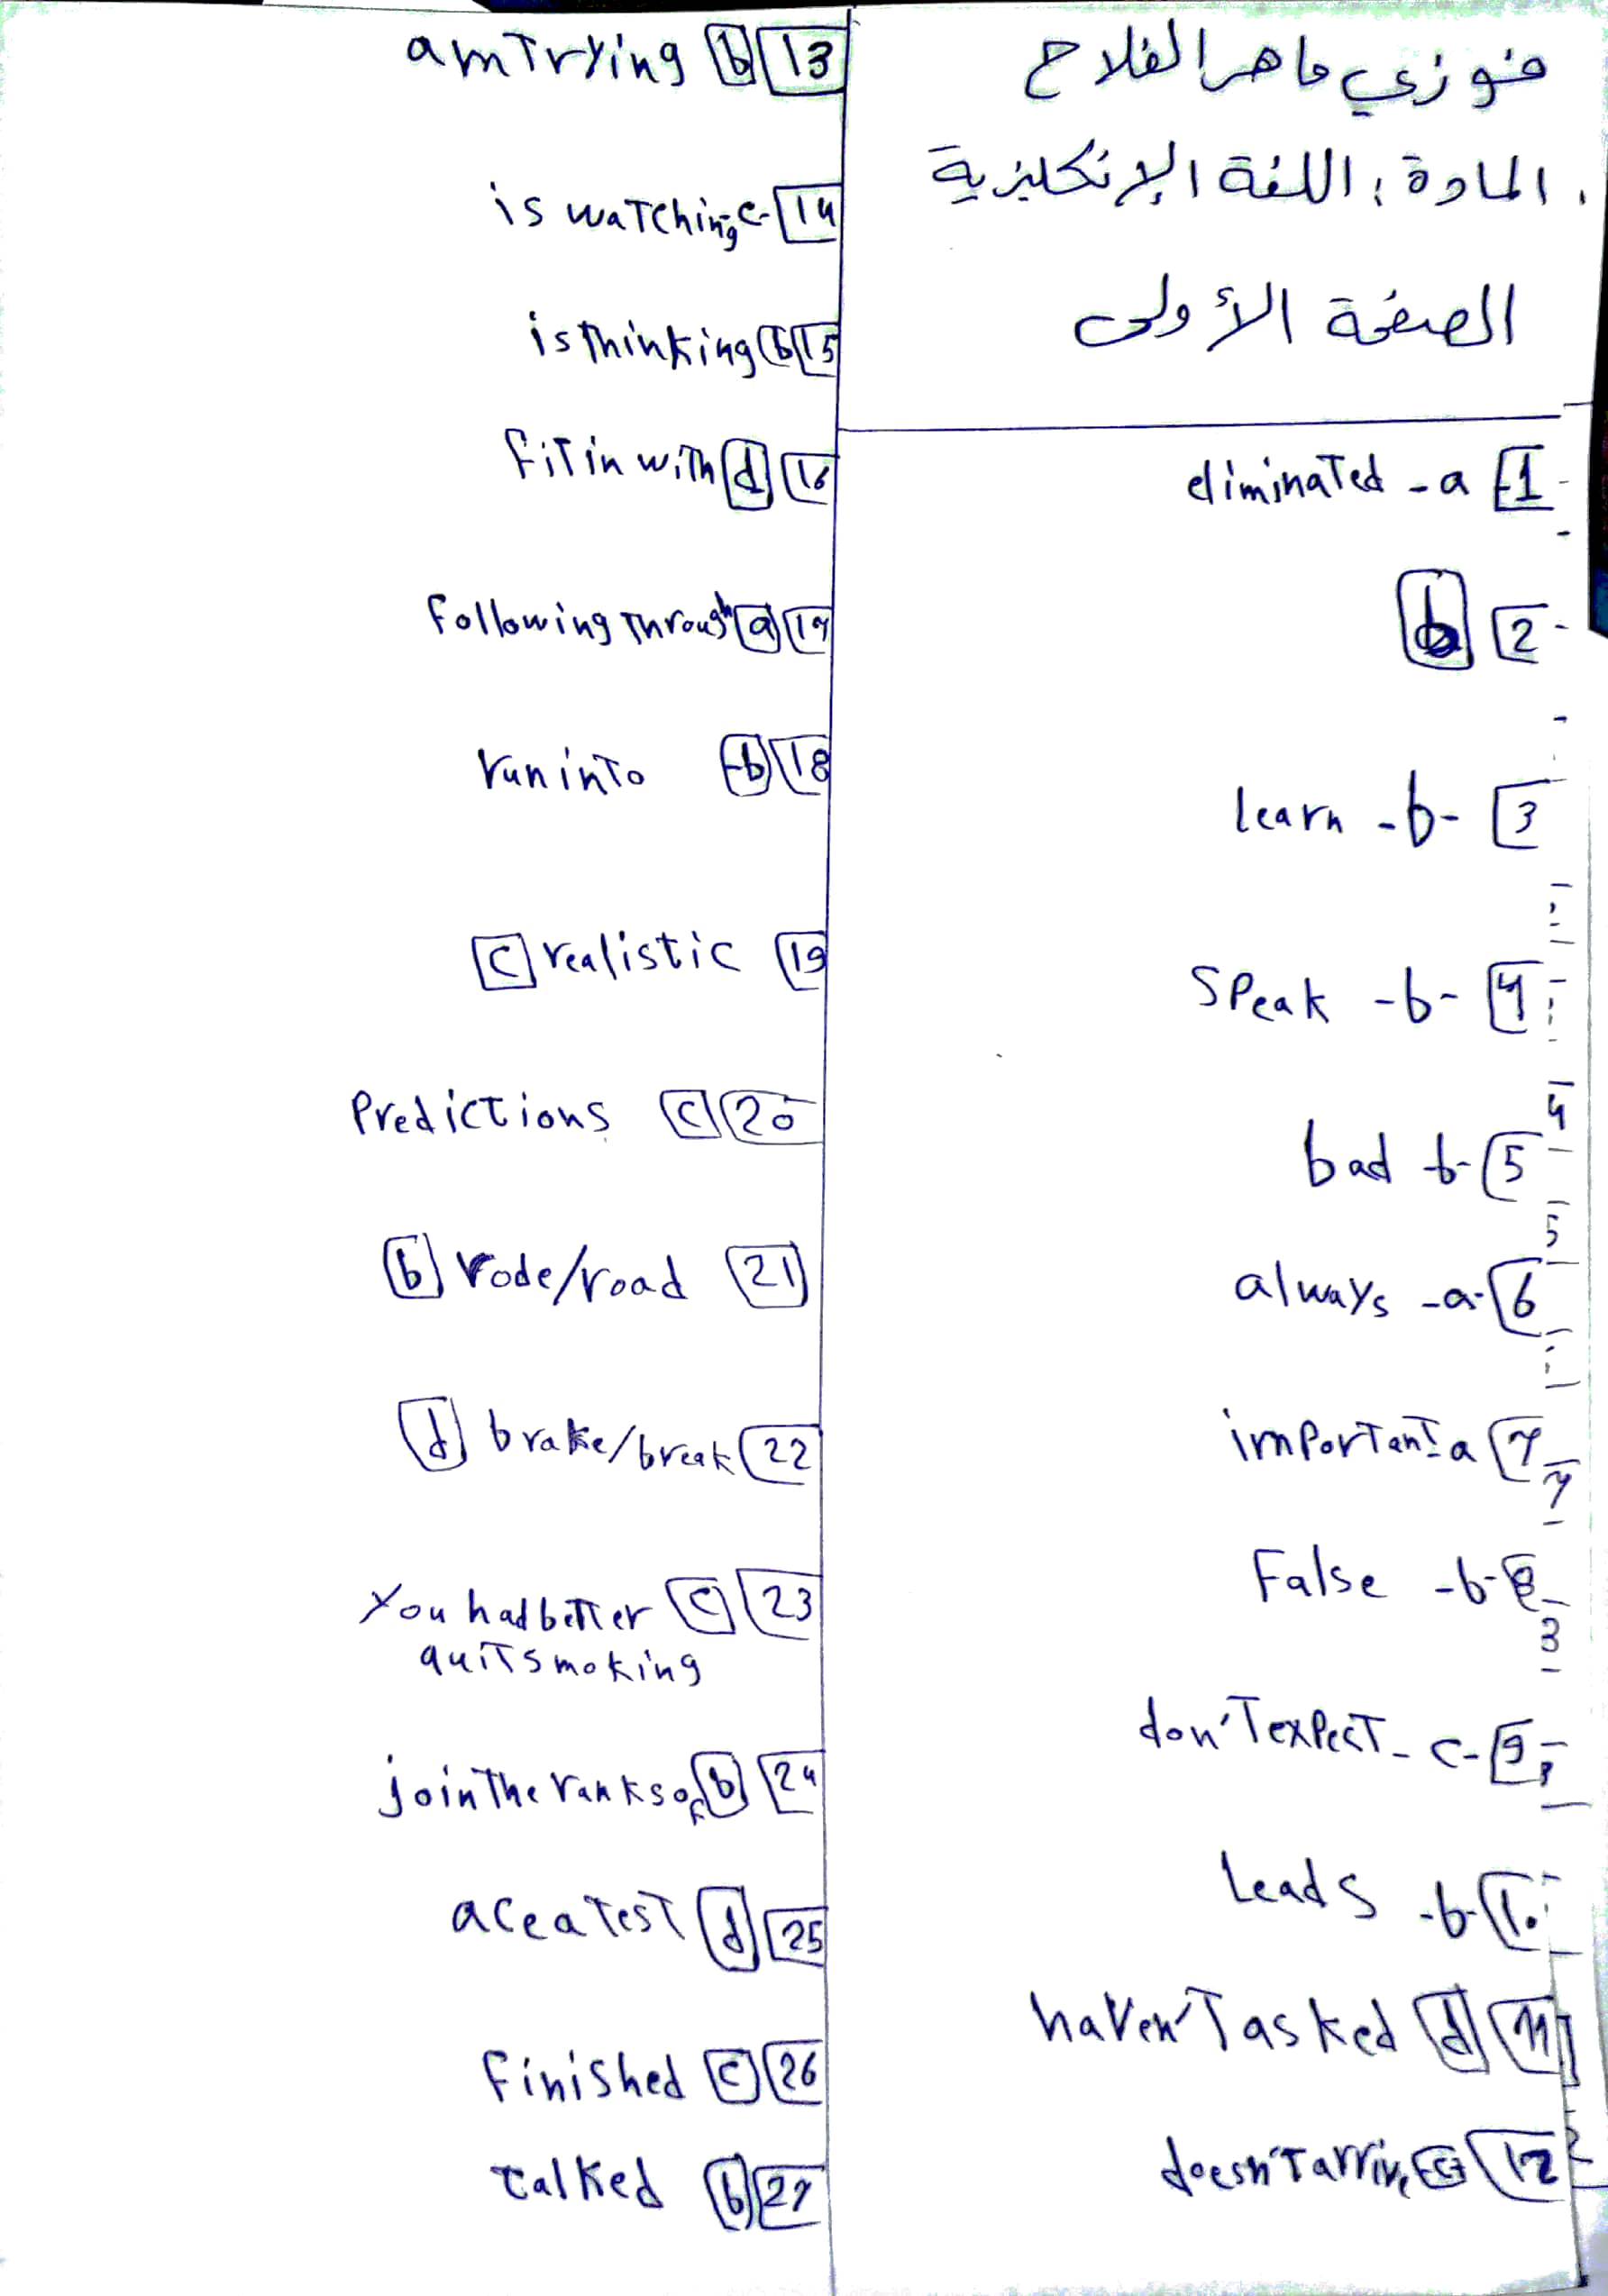 فوزي ماهر الفلاح
المادة: اللغة الإنكليزية
الصفحة الأولى
eliminated - a 1
b 2
learn - b - 3
speak - b - 4
bad b - 5
always - a - 6
important - a 7
False - b - 8
don't expect - c - 9
Leads - b - 10
haven't asked d 11
doesn't arrive c 12
am Trying b 13
is watching c - 14
is thinking b 15
fit in with d 16
following through a 17
run into b 18
c realistic 19
Predictions c 20
b rode/road 21
d brake/break 22
You had better c 23
quit smoking
join The ranks of b 24
ace a test d 25
finished c 26
talked b 27